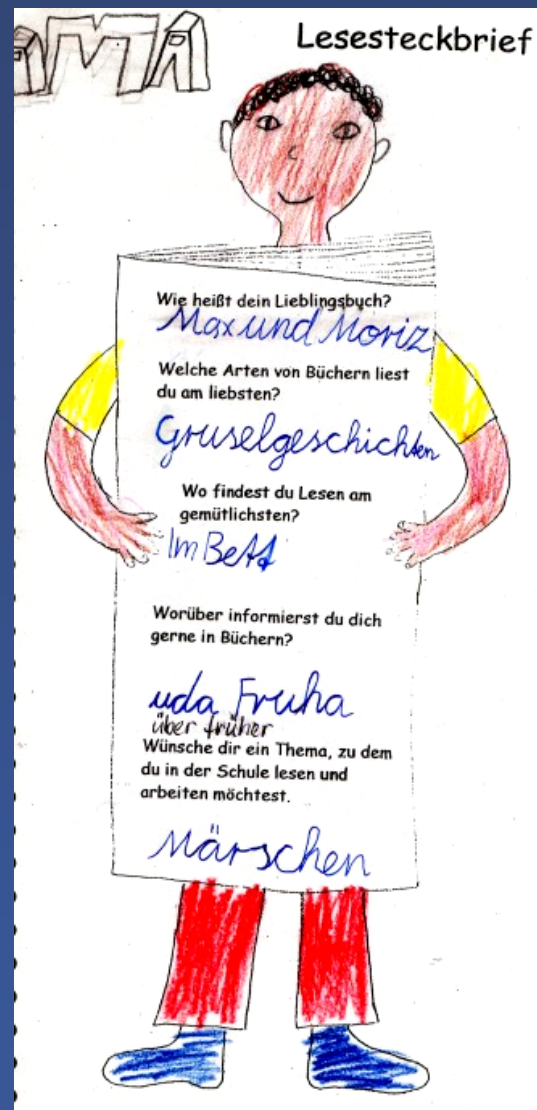 Lesesteckbrief
Wie heißt dein Lieblingsbuch?
Max und Moriz
Welche Arten von Büchern liest
du am liebsten?
Gruselgeschichten
Wo findest du Lesen am
gemütlichsten?
Im Bett
Worüber informierst du dich
gerne in Büchern?
uda Fruha
über früher
Wünsche dir ein Thema, zu dem
du in der Schule lesen und
arbeiten möchtest.
Märschen